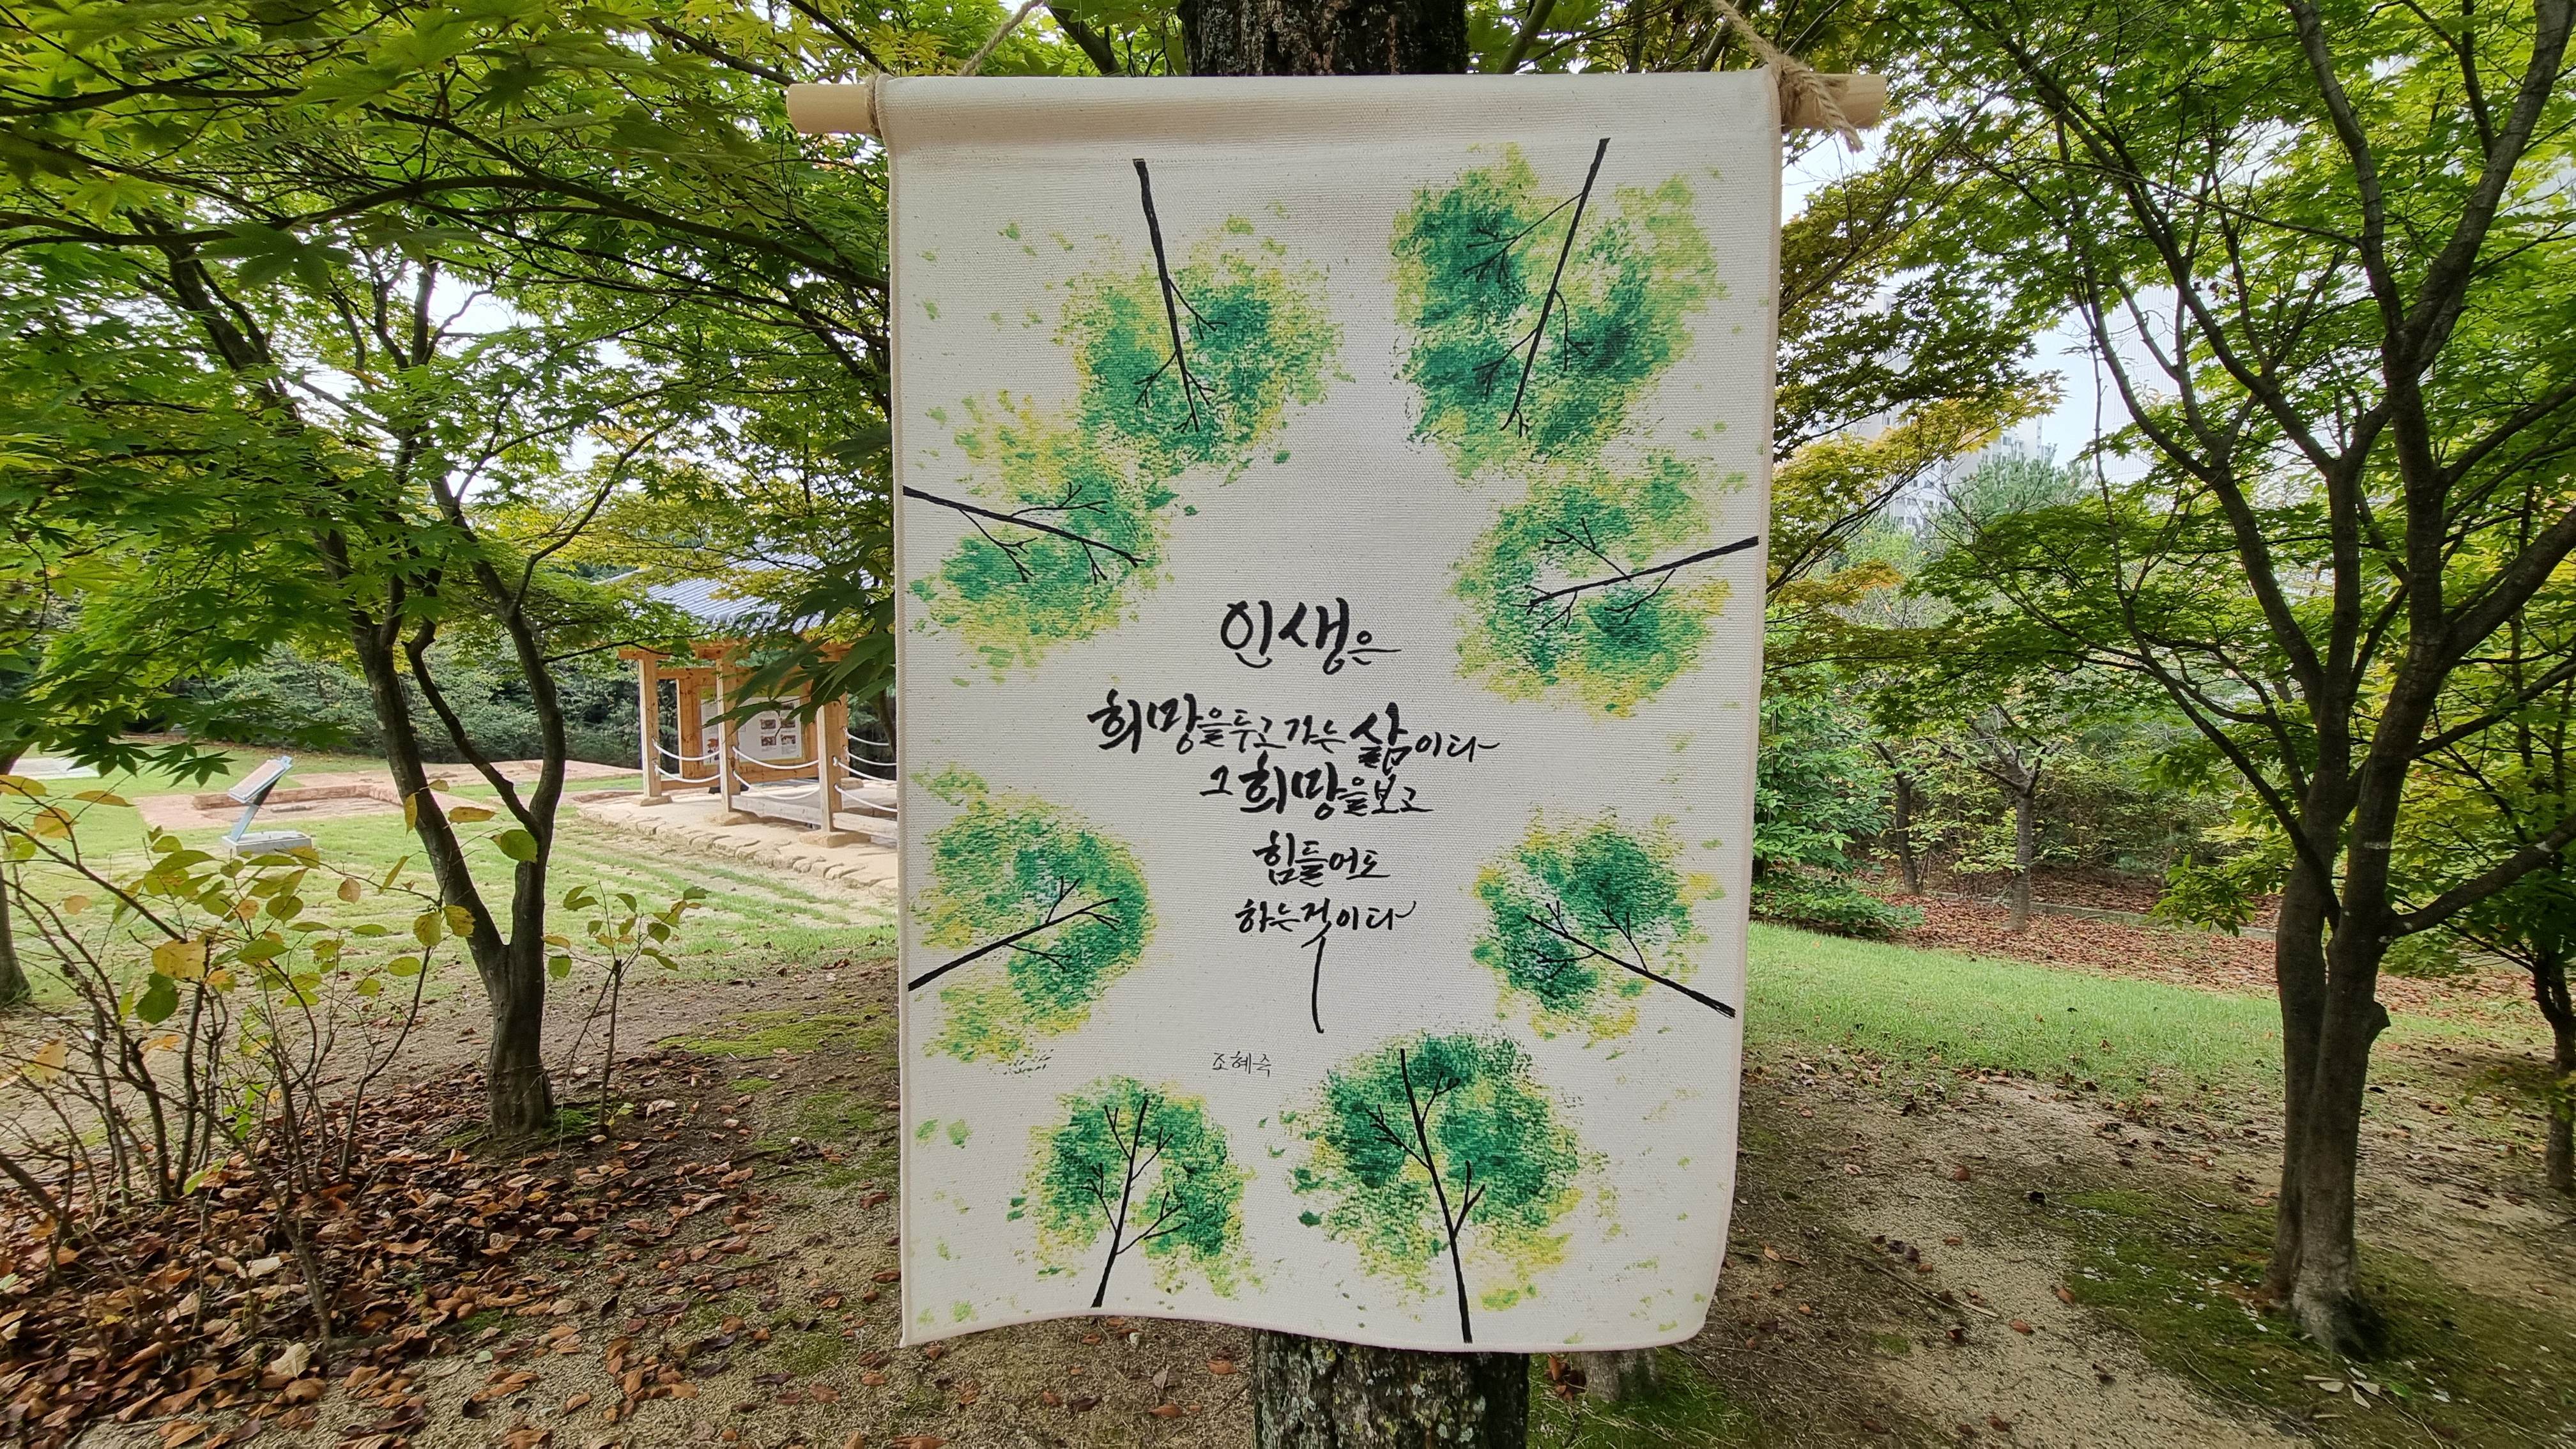 인생은
희망을 두고 가는 삶이다
그 희망을 보고
힘들어도
하는 것이다
조혜숙